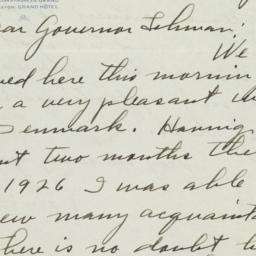 GRAND HÔTEL
ear Governor Lehman;
We
ved here this mornin
a very pleasant
Denmark. Having
nt two months the
1926 I was able
ew many acquaint
here is no doubt